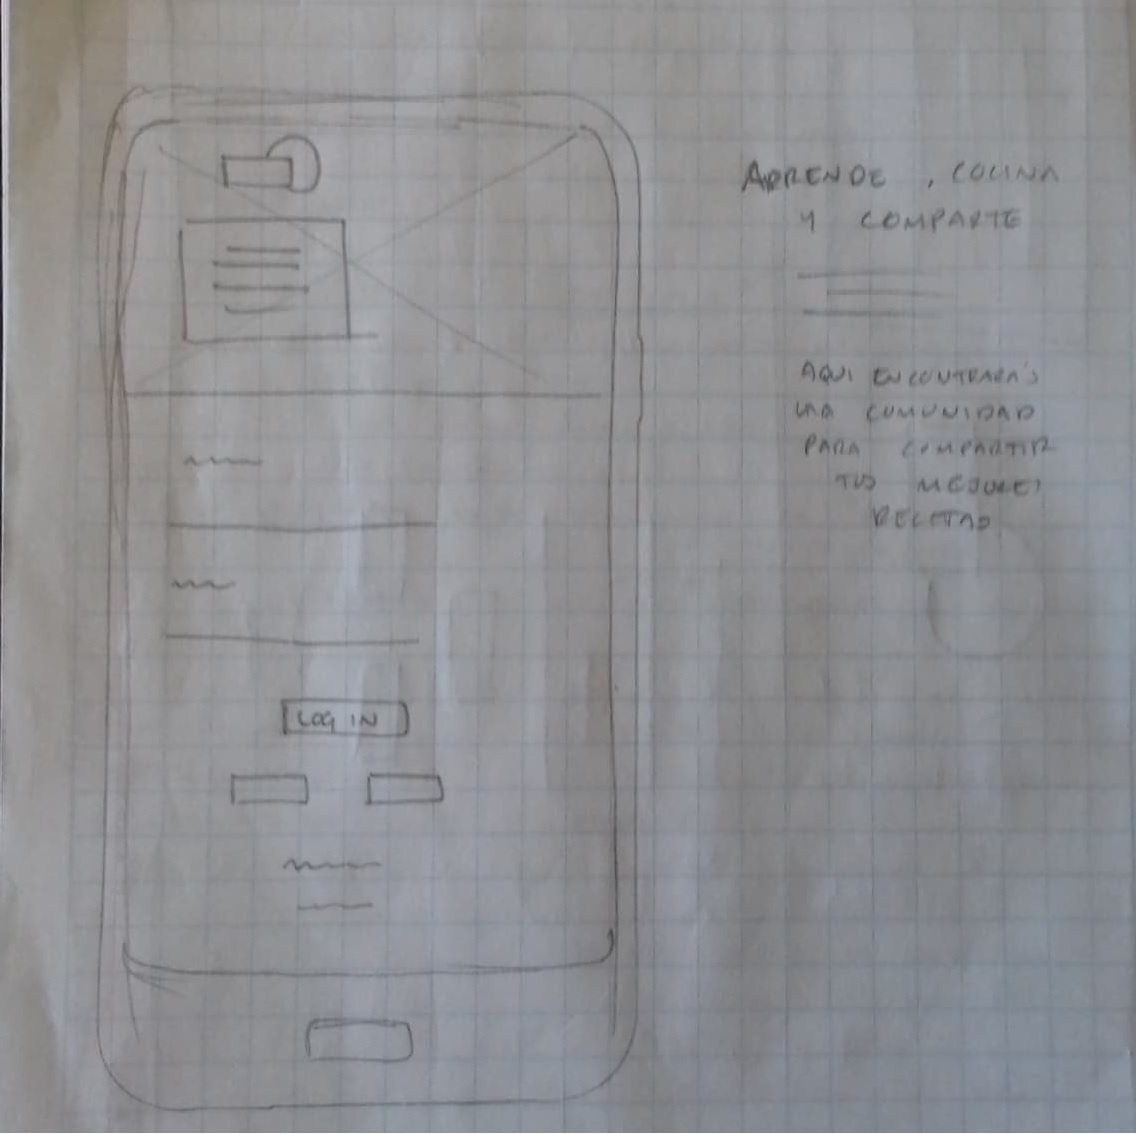 APRENDE , COCINA
Y COMPARTE
AQUI ENCONTRARÁS
UNA COMUNIDAD
PARA COMPARTIR
TUS MEJORES
RECETAS
LOG IN